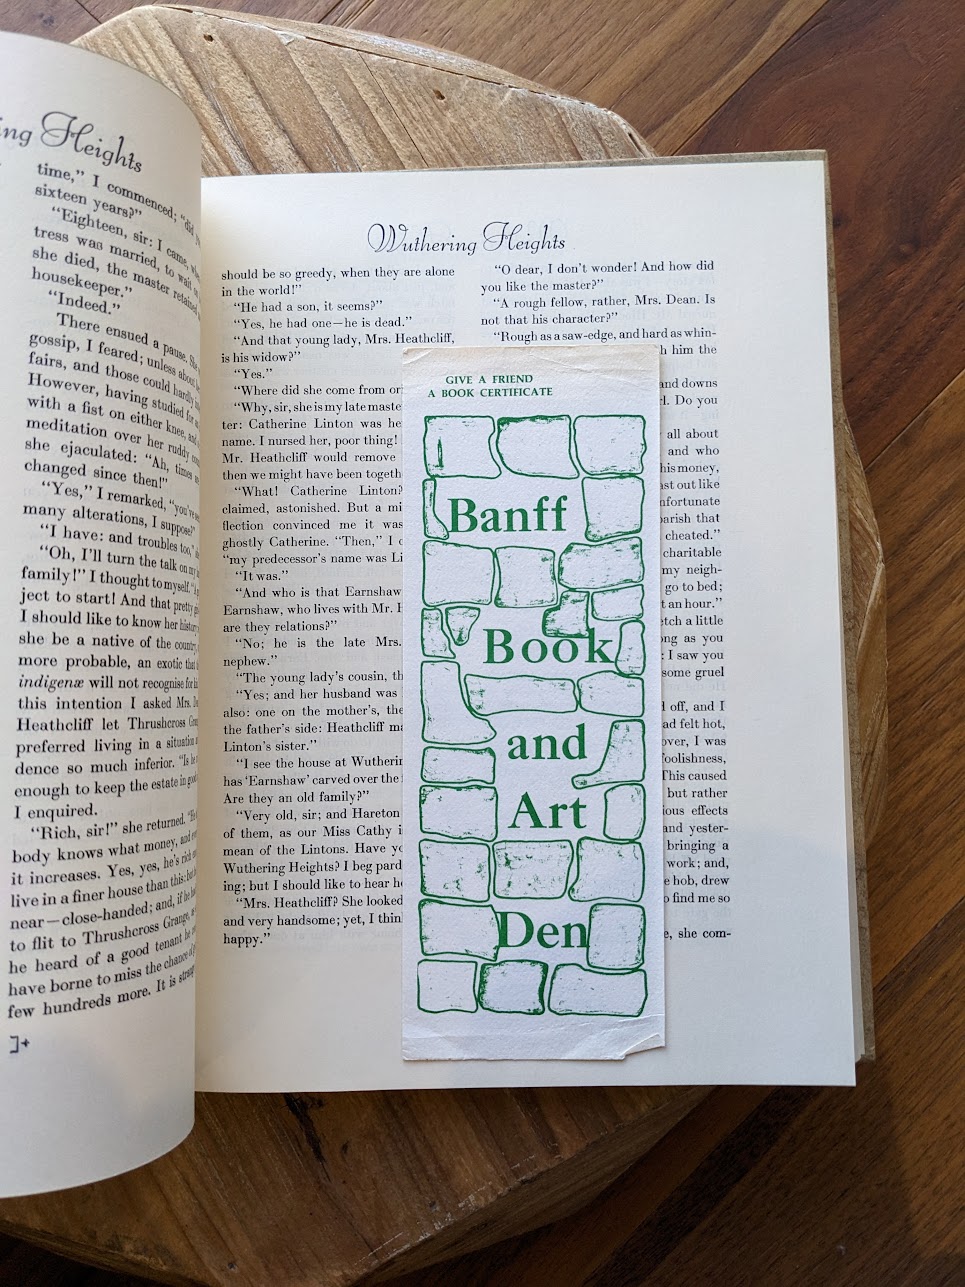 ing Heights
time,” I commenced; “did
sixteen years?”
“Eighteen, sir: I came,
tress was married, to wait
she died, the master retained
housekeeper.”
“Indeed.”
There ensued a pause. She
gossip, I feared; unless about
fairs, and those could hardly
However, having studied for
with a fist on either knee, and
meditation over her ruddy
she ejaculated: “Ah, times
changed since then!”
“Yes,” I remarked, “you’ve
many alterations, I suppose?”
“I have: and troubles too,”
“Oh, I’ll turn the talk on my
family!” I thought to myself.
ject to start! And that pretty
I should like to know her history
she be a native of the country,
more probable, an exotic that
indigenæ will not recognise for
this intention I asked Mrs.
Heathcliff let Thrushcross
preferred living in a situation
dence so much inferior. “Is he
enough to keep the estate in good
I enquired.
“Rich, sir!” she returned.
body knows what money, and
it increases. Yes, yes, he’s rich
live in a finer house than this: but
near—close-handed; and, if he
to flit to Thrushcross Grange,
he heard of a good tenant he
have borne to miss the chance of
few hundreds more. It is
Wuthering Heights
should be so greedy, when they are alone
in the world!”
“He had a son, it seems?”
“Yes, he had one—he is dead.”
“And that young lady, Mrs. Heathcliff,
is his widow?”
“Yes.”
“Where did she come from
“Why, sir, she is my late
ter: Catherine Linton was her
name. I nursed her, poor thing!
Mr. Heathcliff would remove
then we might have been
“What! Catherine Linton?
claimed, astonished. But a
flection convinced me it was
ghostly Catherine. “Then,” I
“my predecessor’s name was
“It was.”
“And who is that Earnshaw
Earnshaw, who lives with Mr.
are they relations?”
“No; he is the late Mrs.
nephew.”
“The young lady’s cousin,
“Yes; and her husband was
also: one on the mother’s, the
the father’s side: Heathcliff
Linton’s sister.”
“I see the house at
has ‘Earnshaw’ carved over the
Are they an old family?”
“Very old, sir; and Hareton
of them, as our Miss Cathy
mean of the Lintons. Have
Wuthering Heights? I beg
ing; but I should like to hear
“Mrs. Heathcliff? She looked
and very handsome; yet, I
happy.”
“O dear, I don’t wonder! And how did
you like the master?”
“A rough fellow, rather, Mrs. Dean. Is
not that his character?”
“Rough as a saw-edge, and hard as whin-
him the
and downs
Do you
all about
and who
his money,
out like
that
cheated.”
charitable
my neigh-
go to bed;
an hour.”
a little
as you
I saw you
some gruel
off, and I
felt hot,
I was
This caused
but rather
effects
and yester-
bringing a
work; and,
hob, drew
find me so
she com-
GIVE A FRIEND
A BOOK CERTIFICATE
Banff
Book
and
Art
Den